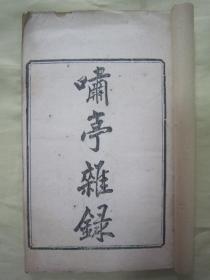 嘯亭雜録